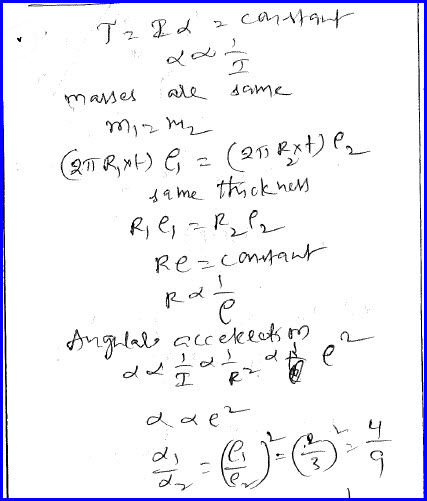 T = I α = constant
α ∝ 1/I
masses are same
m₁ = m₂
(2π R₁ × t) ρ₁ = (2π R₂ × t) ρ₂
same thickness
R₁ ρ₁ = R₂ ρ₂
Rρ = constant
R ∝ 1/ρ
Angular acceleration
α ∝ 1/I ∝ 1/R² ∝ ρ²
α ∝ ρ²
α₁/α₂ = (ρ₁/ρ₂)² = (2/3)² = 4/9